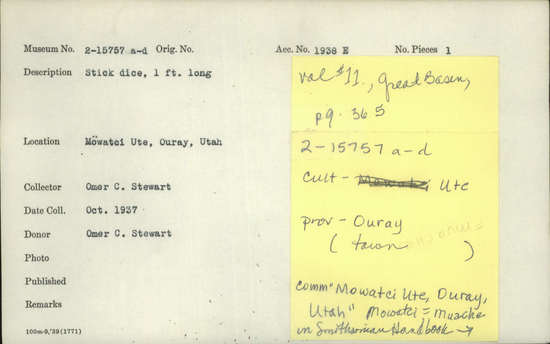 Museum No. 2-15757 a-d Orig. No. Acc. No. 1938 E No. Pieces 1
Description Stick dice, 1 ft. long
Location Möwatci Ute, Ouray, Utah
Collector Omer C. Stewart
Date Coll. Oct. 1937
Donor Omer C. Stewart
Photo
Published
Remarks
100m-9,'39(1771)
Vol #11., Great Basin,
pg. 365
2-15757 a-d
cult - Mowatci Ute
prov - Ouray
(town )
comm "Mowatci Ute, Ouray,
Utah" Mowatci = Muache
in Smithsonian Handbook →